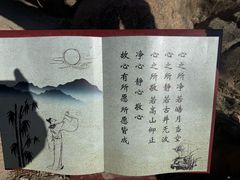 心之所净若皓月当空
心之所静若古井无波
心之所敬若高山仰止
净心 静心 敬心
故心有所愿所愿皆成